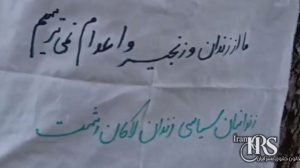 ما از زندان و زنجیر و اعدام نمی ترسیم
زندانیان سیاسی زندان لاکان رشت
Iran
HRS